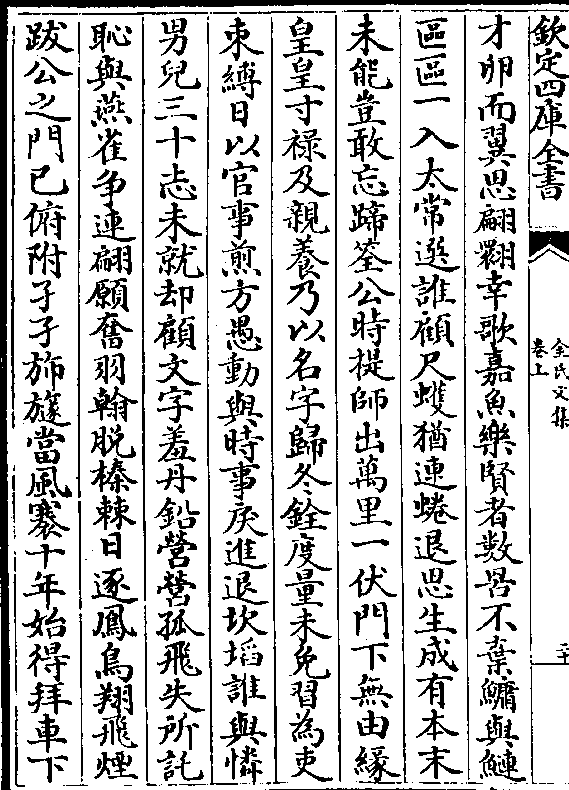 欽定四庫全書
金氏文集
卷上
二十
才卵而翼思翩翾幸歌嘉魚樂賢者數罟不棄鱅與鰱
區區一入太常選誰顧尺蠖猶連蜷退思生成有本末
未能豈敢忘蹄筌公時提師出萬里一伏門下無由緣
皇皇寸祿及親養乃以名字歸冬銓度量未免習為吏
束縛日以官事煎方愚動與時事戾進退坎壈誰與憐
男兒三十志未就却顧文字羞丹鉛營營孤飛失所託
恥與燕雀争連翩願奮羽翰脱榛棘日逐鳳鳥翔飛煙
跋公之門已俯附孑孑斾旟當風褰十年始得拜車下